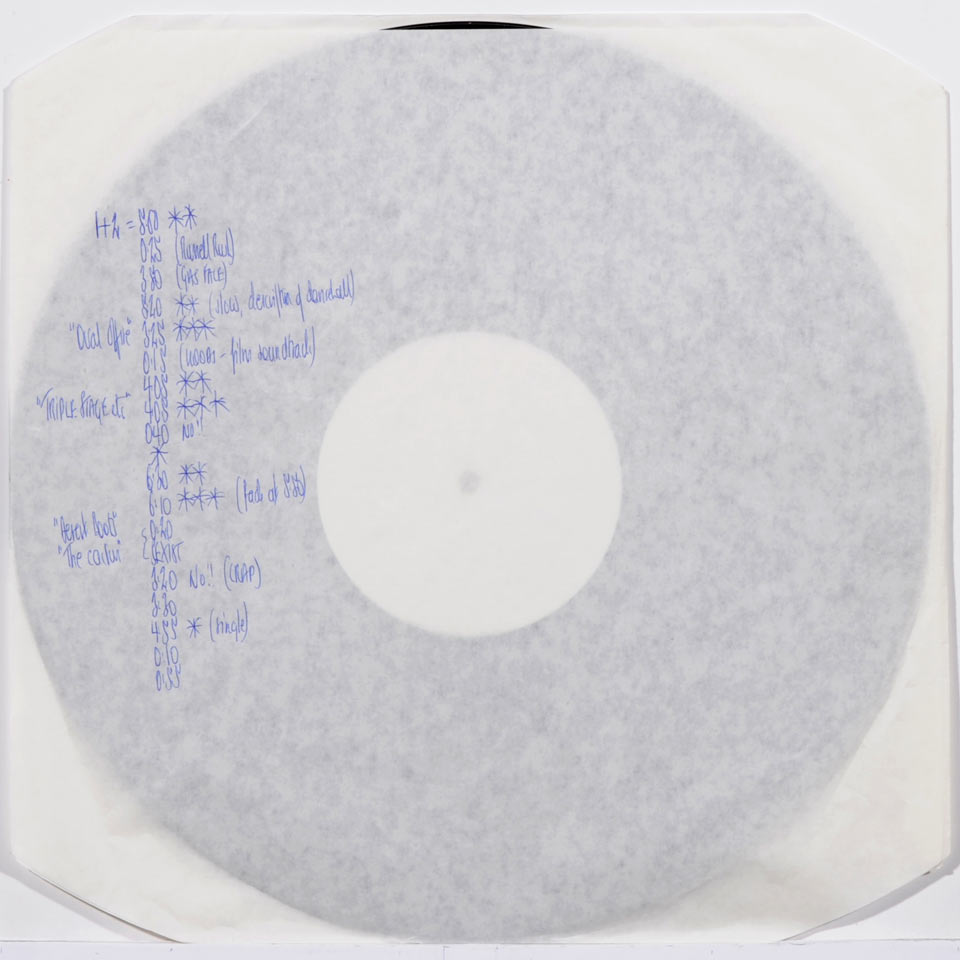 1+2 = 5:00 **
0:25 (Russell Rush)
3:50 (GAS FACE)
5:20 ** (slow, description of dancehall)
"Oval Office" 3:25 ***
0:15 ( - film soundtrack)
4:05 **
"TRIPLE STAGE etc" 4:05 ***
0:40 No!!
*
6:30 **
6:10 *** (fade at 5:50)
0:20
"The cactus" { SEXIST
3:20 No!! (CRAP)
3:30
4:55 * (single)
0:10
0:55